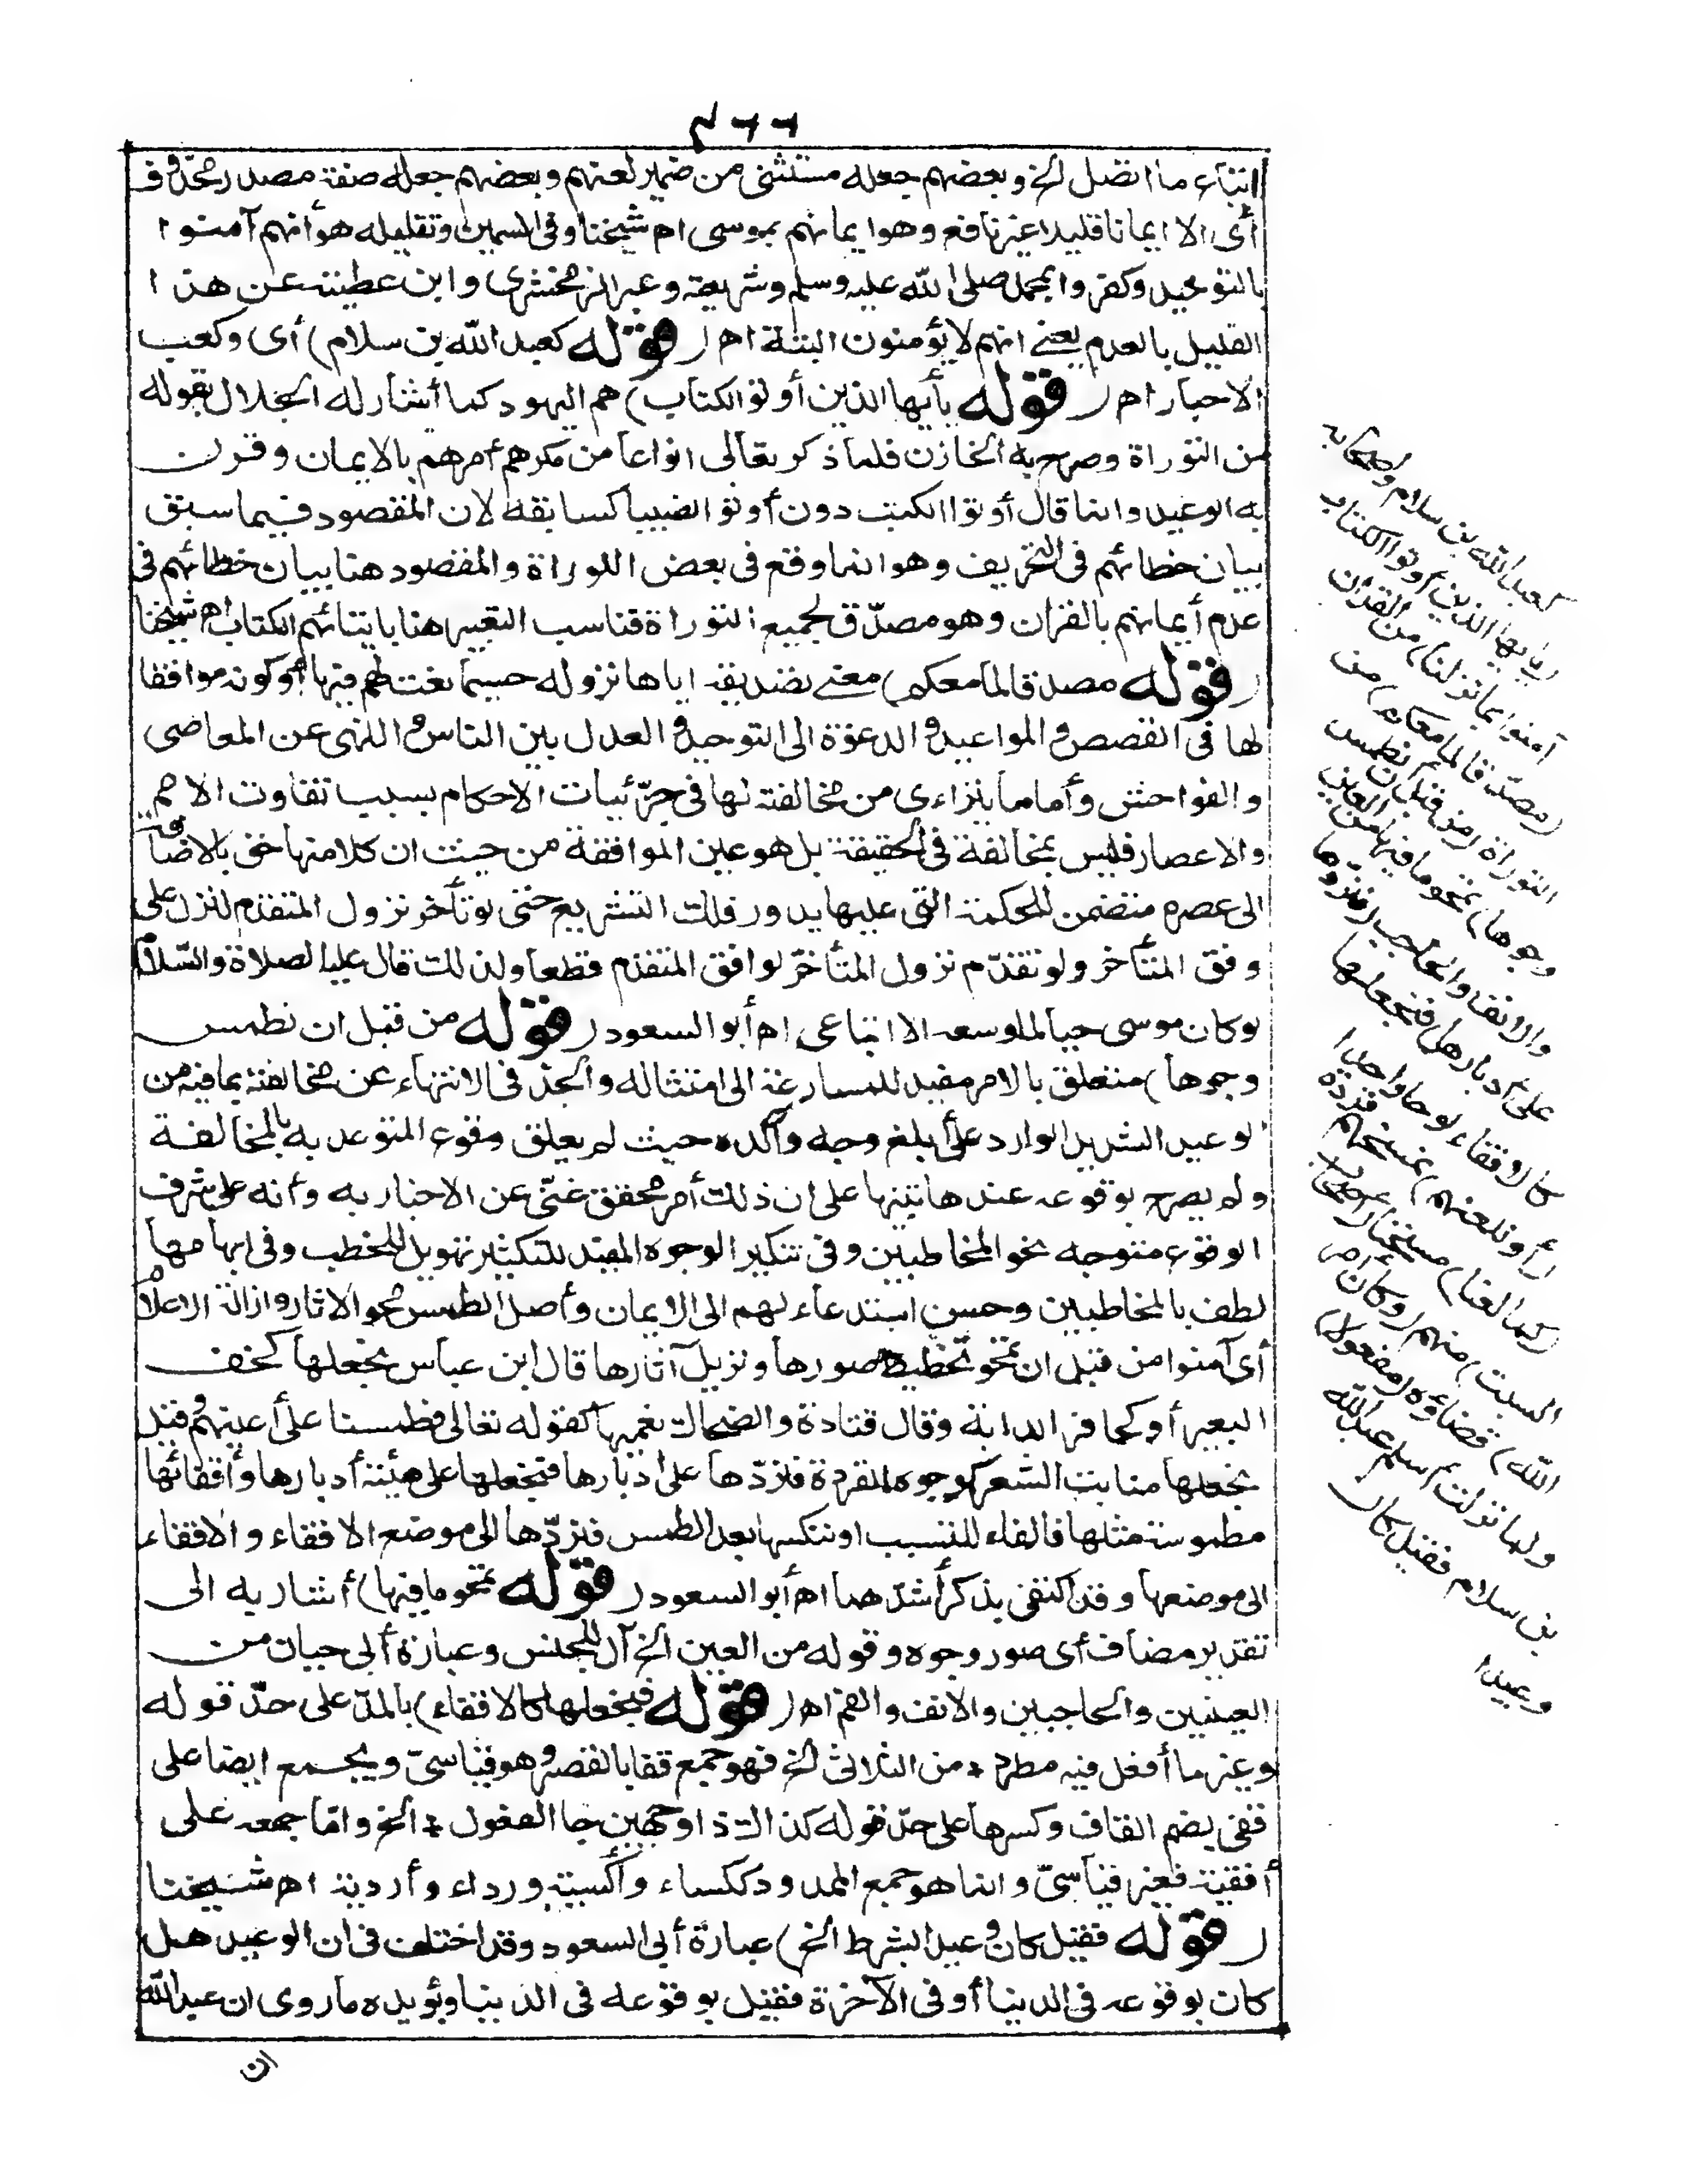 ٤٦٦
اتباع ما اتصل الخ وبعضهم جعله مستثنى من ضمير لعنهم وبعضهم جعله صفة مصدر محذوف
أى الا ايمانا قليلا غير نافع وهو ايمانهم بموسى اه شيخنا وفى السمين وتقليله هو أنهم آمنوا
بالتوحيد وكفروا بمحمد صلى الله عليه وسلم وشريعته وعبر الزمخشرى وابن عطية عن هذا
القليل بالعدم يعنى انهم لا يؤمنون البتة اه ( قوله كعبد الله بن سلام) أى وكعب
الاحبار اه ( قوله يأيها الذين أوتوا الكتاب) هم اليهود كما أشار له الجلال بقوله
من التوراة وصرح به الخازن فلما ذكر تعالى انواعا من مكرهم أمرهم بالايمان وقرن
به الوعيد وانما قال أوتوا الكتب دون أوتوا نصيبا كسابقه لان المقصود فيما سبق
بيان خطائهم فى التحريف وهو انما وقع فى بعض التوراة والمقصود هنا بيان خطائهم فى
عدم أيمانهم بالقران وهو مصدّق لجميع التوراة فناسب التعبير هنا بايتائهم الكتاب اه شيخنا
( قوله مصدقا لما معكم) معنى تصديقه اياها نزوله حسبما نعت لهم فيها أو كونه موافقا
لها فى القصص والمواعيد والدعوة الى التوحيد والعدل بين الناس والنهى عن المعاصى
والفواحش وأما ما يتراءى من مخالفته لها فى جزئيات الاحكام بسبب تفاوت الامم
والاعصار فليس بمخالفة فى الحقيقة بل هو عين الموافقة من حيث ان كلا منها حق بالاضافة
الى عصره متضمن للحكمة التى عليها يدور فلك التشريع حتى لو تأخر نزول المتقدم لنزل على
وفق المتأخر ولو تقدّم نزول المتأخر لوافق المتقدم قطعا ولذلك قال عليه الصلاة والسلام
لو كان موسى حيا لما وسعه الا اتباعى اه أبو السعود ( قوله من قبل ان نطمس
وجوها) متعلق بالامر مفيد للمسارعة الى امتثاله والجد فى الانتهاء عن مخالفته بما فيه من
الوعيد الشديد الوارد على أبلغ وجه وآكده حيث لم يعلق وقوع المتوعد به بالمخالفة
ولم يصرح بوقوعه عندها تنبيها على ان ذلك أمر محقق غنىّ عن الاخبار به وأنه على شرف
الوقوع متوجه نحو المخاطبين وفى تنكير الوجوه المفيد للتكثير تهويل للخطب وفى ابهامها
لطف بالمخاطبين وحسن استدعاء لهم الى الايمان وأصل الطمس محو الاثار وازالة الاعلام
أى آمنوا من قبل ان نمحو تخطيط صورها ونزيل آثارها قال ابن عباس نجعلها كخف
البعير أو كحافر الدابة وقال قتادة والضحاك نعميها كقوله تعالى فطمسنا على أعينهم وقيل
نجعلها منابت الشعر كوجوه القردة فنردّها على ادبارها فنجعلها على هيئة أدبارها وأقفائها
مطموسة مثلها فالفاء للتسبب او ننكسها بعد الطمس فنردّها الى موضع الاقفاء والاقفاء
الى موضعها وقد اكتفى بذكر أشدّهما اه أبو السعود ( قوله نمحو ما فيها) أشار به الى
تقدير مضاف أى صور وجوه وقوله من العين الخ آل للجنس وعبارة أبى حيان من
العينين والحاجبين والانف والفم اه ( قوله فنجعلها كالاقفاء) بالمدّ على حدّ قوله
وغير ما أفعل فيه مطرد * من الثلاثى الخ فهو جمع قفا بالقصر وهو قياسىّ ويجمع ايضا على
قفى بضم القاف وكسرها على حدّ قوله كذاك ذا وجهين جا الفعول * الخ وامّا جمعه على
أقفية فغير قياسىّ وانما هو جمع الممدود ككساء وأكسية ورداء وأردية اه شيخنا
( قوله فقيل كان وعيدا بشرط الخ) عبارة أبى السعود وقد اختلف فى ان الوعيد هل
كان بوقوعه فى الدنيا أو فى الآخرة فقيل بوقوعه فى الدنيا ويؤيده ما روى ان عبد الله
ان
كعبد الله بن سلام وأصحابه
(يأيها الذين أوتوا الكتاب
آمنوا بما نزلنا) من القرآن
(مصدّقا لما معكم) من
التوراة (من قبل أن نطمس
وجوها) نمحو ما فيها من العين
والانف والحاجب (فنردّها
على أدبارها) فنجعلها
كالاقفاء لوحا واحدا
(أو نلعنهم) نمسخهم قردة
(كما لعنا) مسخنا (أصحاب
السبت) منهم (وكان أمر
الله) قضاؤه (مفعولا)
ولما نزلت أسلم عبد الله
بن سلام فقيل كان
وعيدا